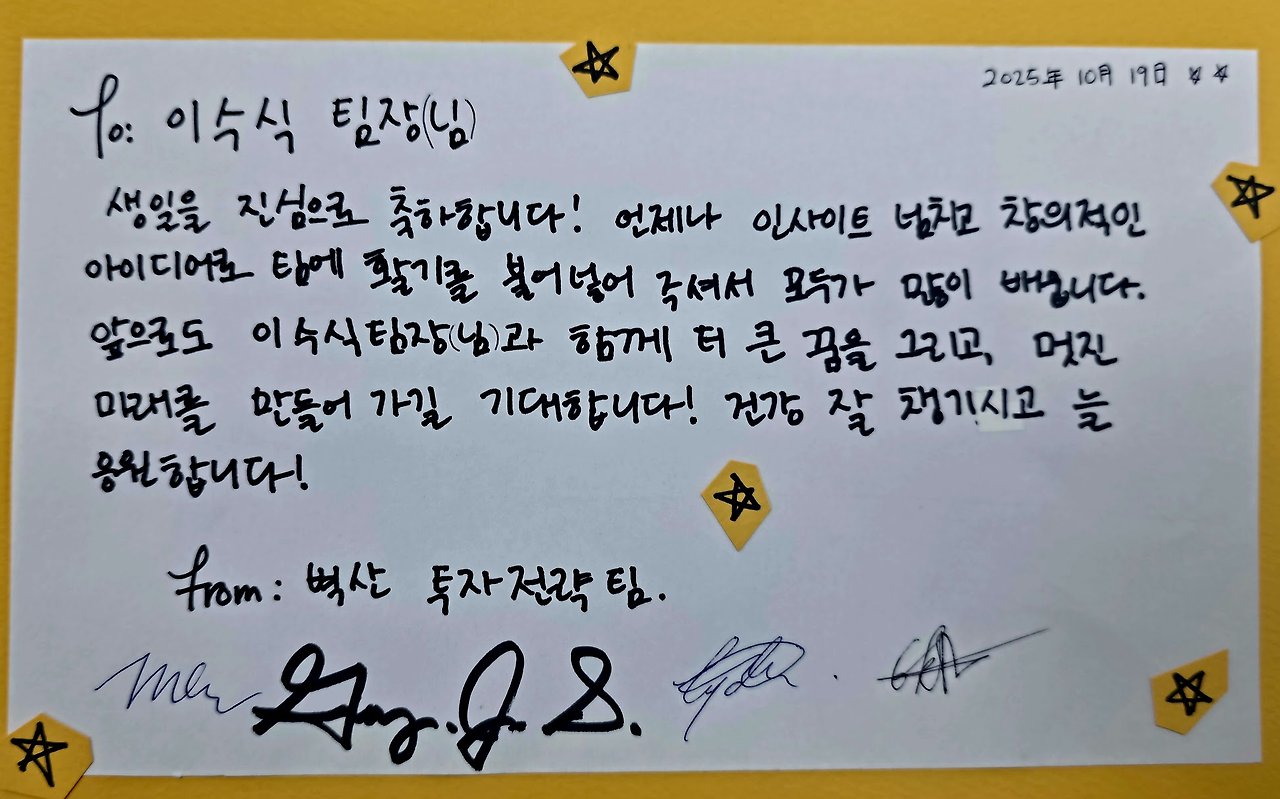 2025年 10月 19日
To: 이수식 팀장(님)
생일을 진심으로 축하합니다! 언제나 인사이트 넘치고 창의적인
아이디어로 팀에 활기를 불어넣어 주셔서 모두가 많이 배웁니다.
앞으로도 이수식팀장(님)과 함께 더 큰 꿈을 그리고, 멋진
미래를 만들어 가길 기대합니다! 건강 잘 챙기시고 늘
응원합니다!
From: 벽산 투자전략팀.